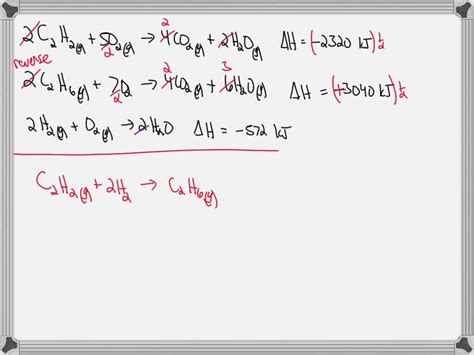 2C₂H₂(g) + 5/2 O₂(g) → 4 2 CO₂(g) + 2H₂O(g) ΔH = (-2320 kJ) 1/2
reverse
2C₂H₆(g) + 7/2 O₂ → 4 2 CO₂(g) + 6 3 H₂O(g) ΔH = (+3040 kJ) 1/2
2H₂(g) + O₂(g) → 2H₂O ΔH = -572 kJ
C₂H₂(g) + 2H₂ → C₂H₆(g)